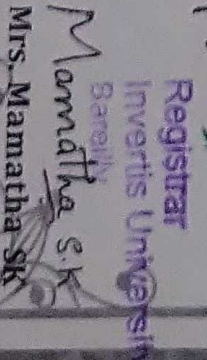 Registrar
Invertis University
Bareilly
Mamatha S.K
Mrs. Mamatha SK